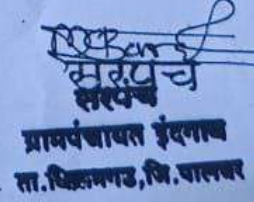 सरपंच
सरपंच
ग्रामपंचायत इंदगाव
ता.विक्रमगड,जि.पालघर